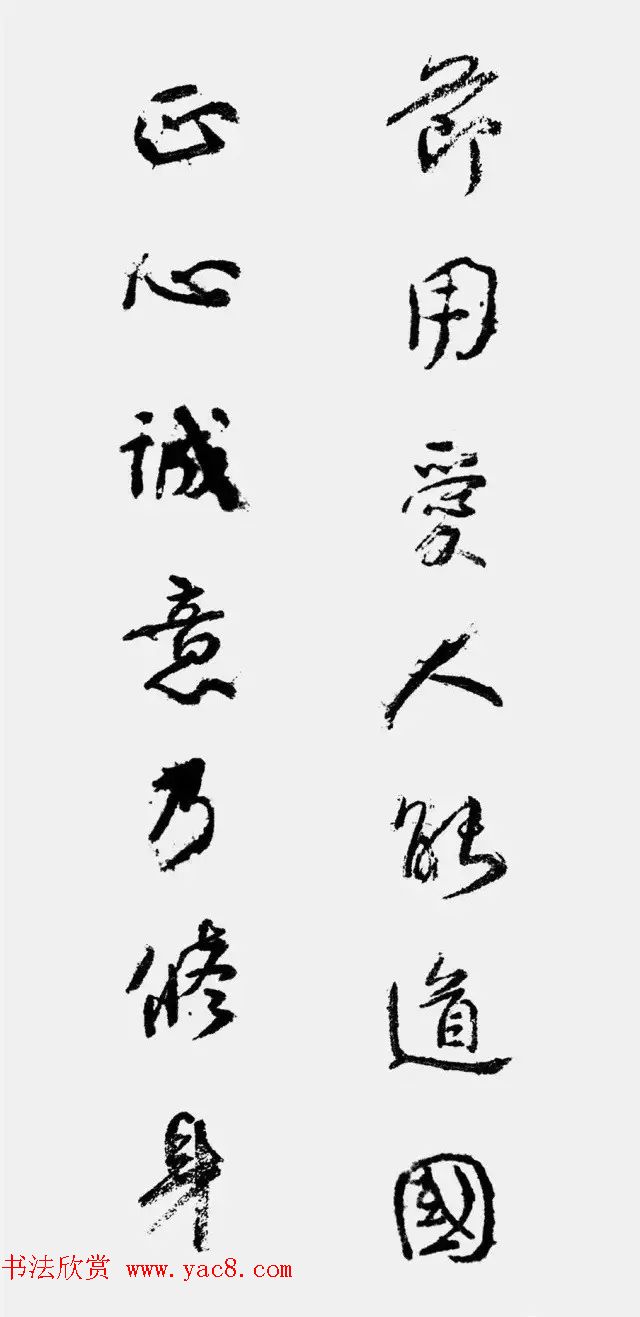 節用愛人能道國
正心诚意乃修身
书法欣赏 www.yac8.com